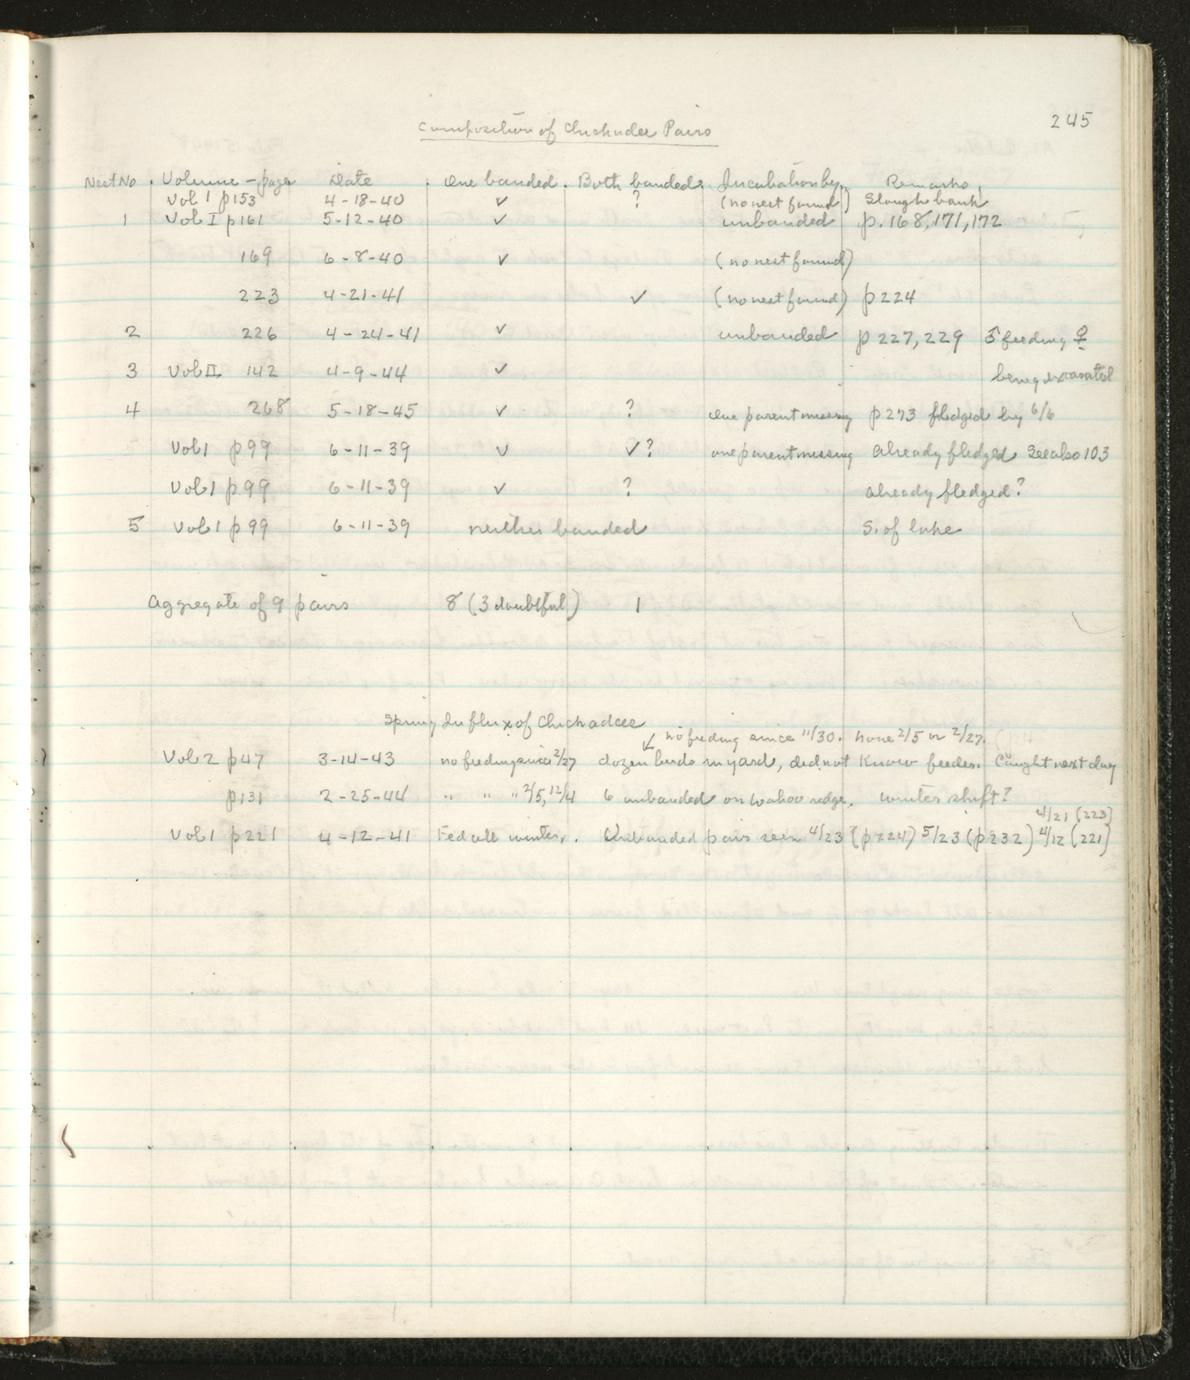 245
Composition of Chickadee Pairs
Nest No. Volume - page Date One banded. Both banded. Incubation by, Remarks,
Vol 1 p153 4-18-40 ✓ ? (no nest found) Slough bank
1 Vol I p161 5-12-40 ✓ unbanded p. 168, 171, 172
169 6-8-40 ✓ (no nest found)
223 4-21-41 ✓ (no nest found) p224
2 226 4-24-41 ✓ unbanded p 227, 229 ♂ feeding ♀
3 Vol II 142 4-9-44 ✓ being excavated
4 268 5-18-45 ✓ ? One parent missing p273 fledged by 6/6
Vol 1 p99 6-11-39 ✓ ✓? one parent missing Already fledged See also 103
Vol 1 p99 6-11-39 ✓ ? already fledged?
5 Vol 1 p99 6-11-39 neither banded S. of lake
Aggregate of 9 pairs 8 (3 doubtful) 1
Spring Influx of Chickadees
↙ no feeding since 11/30. None 2/5 or 2/27.
Vol 2 p47 3-14-43 no feeding since 2/27 dozen birds in yard, did not know feeder. Caught next day
p131 2-25-44 " " " 2/5, 12/4 6 unbanded on Wahoo ridge. Winter shift?
4/21 (223)
Vol 1 p221 4-12-41 Fed all winter. Unbanded pairs seen 4/23 (p224) 5/23 (p232) 4/12 (221)